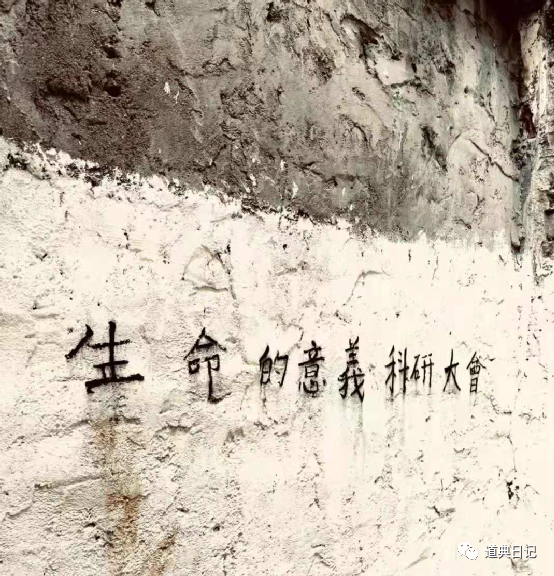 生命的意義科研大會
道典日记